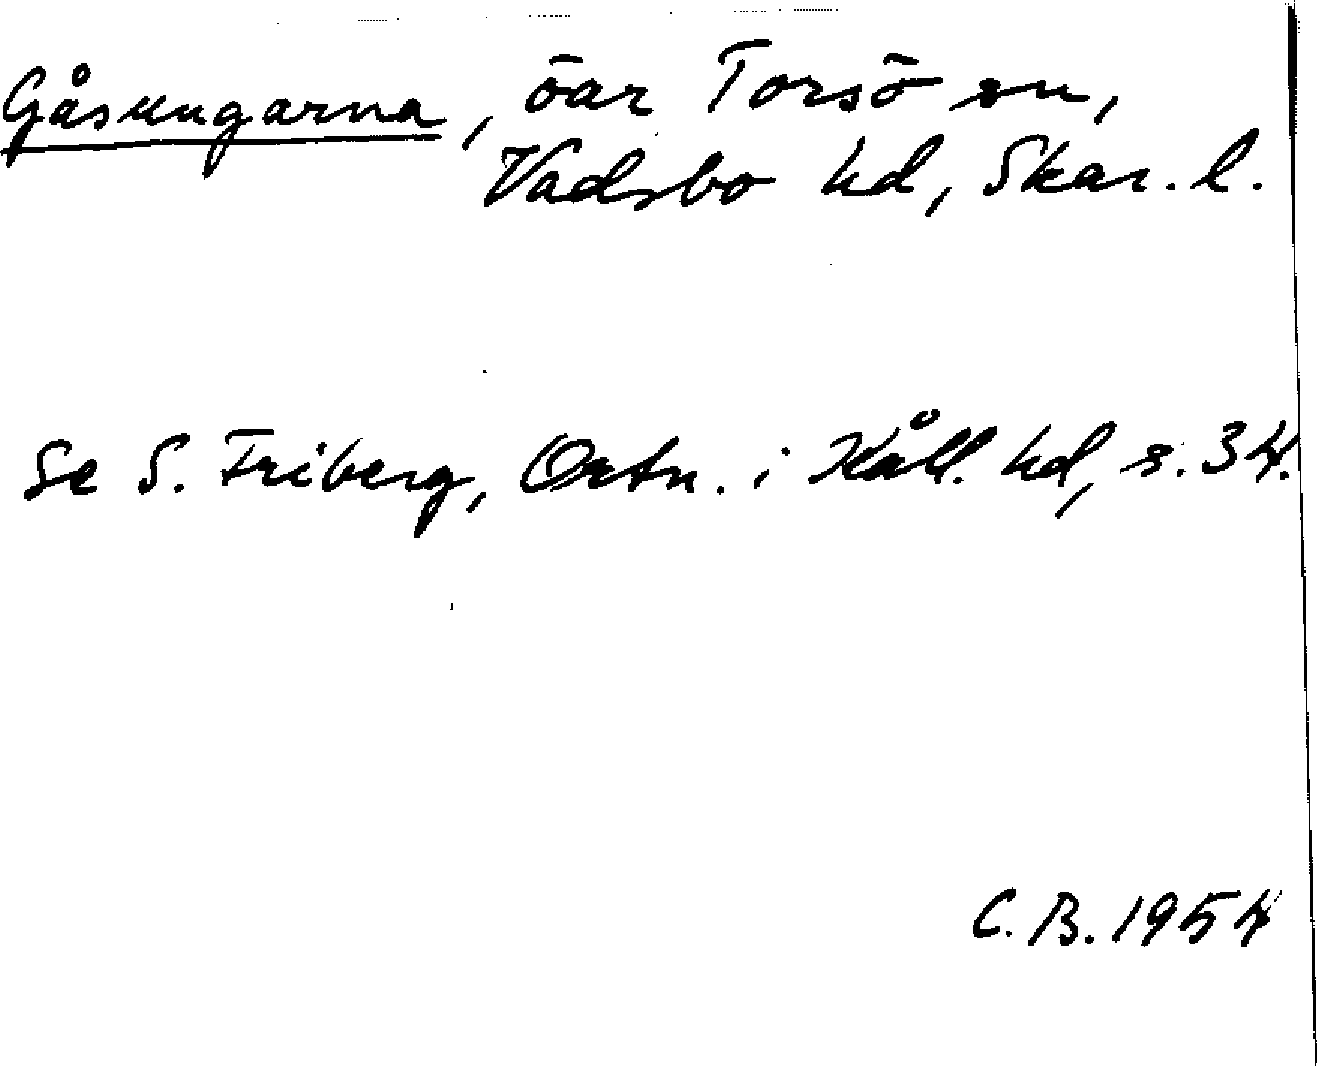 Gåsungarna, öar Torsö sn,
Vadsbo hd, Skar. l.
Se S. Friberg, Ortn. i Kåll. hd, s. 34.
C. B. 1954